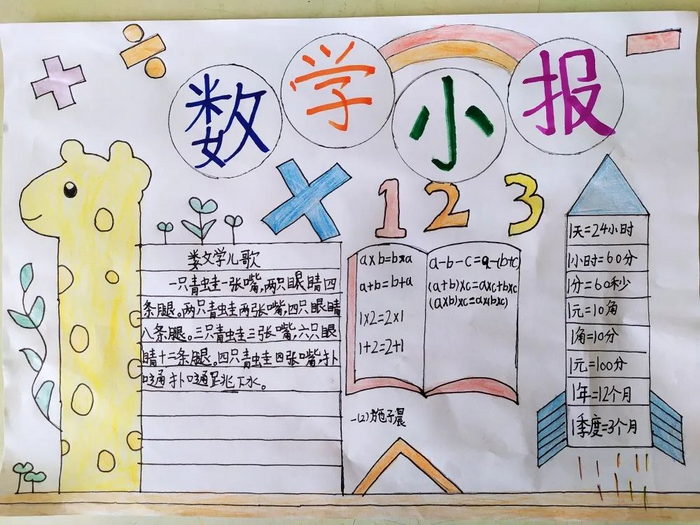 数学小报
1 2 3
娄文学儿歌
一只青蛙一张嘴,两只眼睛四
条腿。两只青蛙两张嘴,四只眼睛
八条腿。三只青蛙三张嘴,六只眼
睛十二条腿。四只青蛙四张嘴,扑
通扑通呈兆下水。
a×b=b×a
a+b=b+a
1×2=2×1
1+2=2+1
a-b-c=a-(b+c)
(a+b)×c=a×c+b×c
(a×b)×c=a×(b×c)
一(2)施子晨
1天=24小时
1小时=60分
1分=60秒
1元=10角
1角=10分
1元=100分
1年=12个月
1季度=3个月